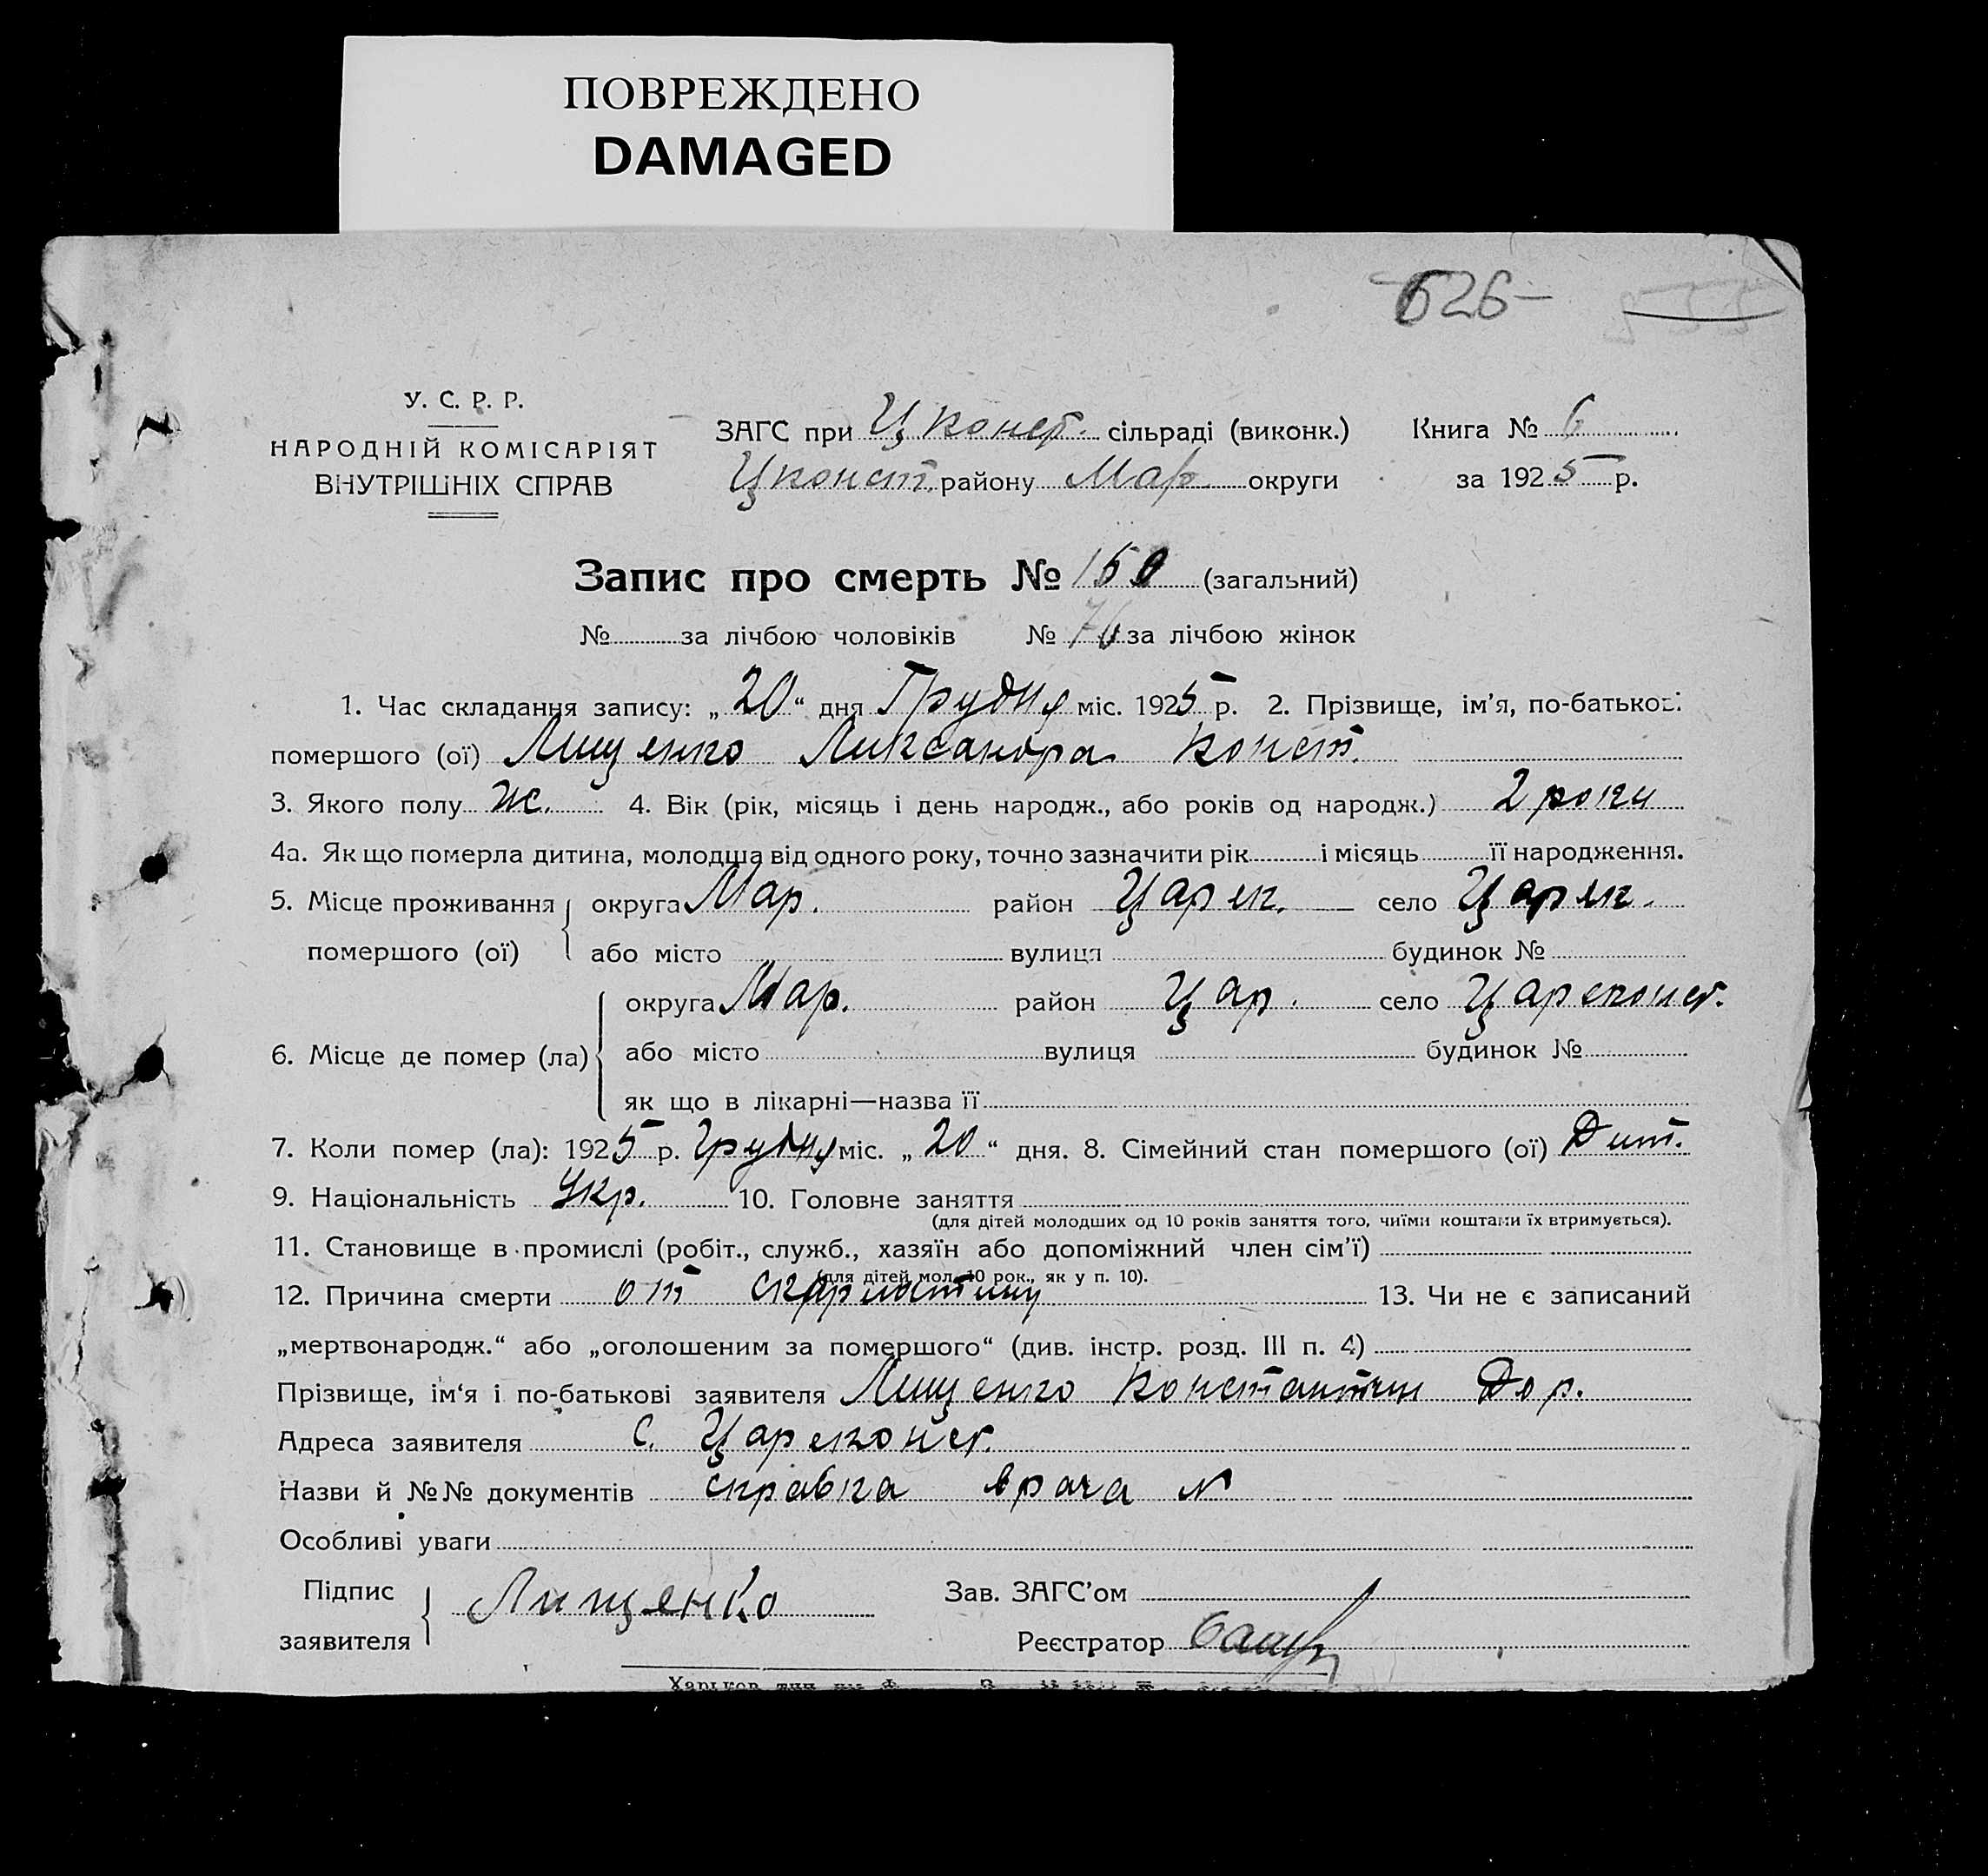 ПОВРЕЖДЕНО
DAMAGED
626
У. С. Р. Р.
НАРОДНІЙ КОМІСАРІЯТ
ВНУТРІШНІХ СПРАВ
ЗАГС при Цконст. сільраді (виконк.)
Цконст. району Мар. округи
Книга № 6
за 1925 р.
Запис про смерть № 160 (загальний)
№ за лічбою чоловіків № 76 за лічбою жінок
1. Час складання запису: „20“ дня Грудня міс. 1925 р. 2. Прізвище, ім'я, по-батькові
помершого (ої) Лищенко Аликсандра Конст.
3. Якого полу ж. 4. Вік (рік, місяць і день народж., або років од народж.) 2 роки
4а. Як що померла дитина, молодша від одного року, точно зазначити рік і місяць її народження.
5. Місце проживання округа Мар. район Царек. село Царек.
помершого (ої) або місто вулиця будинок №
округа Мар. район Цар. село Цареконст.
6. Місце де помер (ла) або місто вулиця будинок №
як що в лікарні—назва її
7. Коли помер (ла): 1925 р. Грудня міс. „20“ дня. 8. Сімейний стан помершого (ої) Дит.
9. Національність Укр. 10. Головне заняття
(для дітей молодших од 10 років заняття того, чиїми коштами їх втримується).
11. Становище в промислі (робіт., служб., хазяїн або допоміжний член сім'ї)
(для дітей мол. 10 рок., як у п. 10).
12. Причина смерти от скарлатини 13. Чи не є записаний
„мертвонародж.“ або „оголошеним за помершого“ (див. інстр. розд. III п. 4)
Прізвище, ім‘я і по-батькові заявителя Лищенко Константин Дор.
Адреса заявителя с. Цареконст.
Назви й №№ документів справка врача №
Особливі уваги
Підпис
заявителя Лищенко
Зав. ЗАГС'ом
Реєстратор